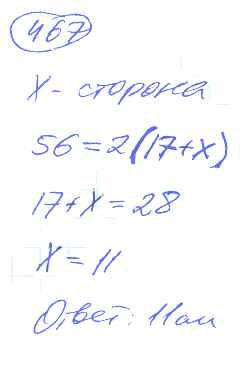 467
X - сторона
56 = 2(17+x)
17 + x = 28
X = 11
Ответ: 11 см